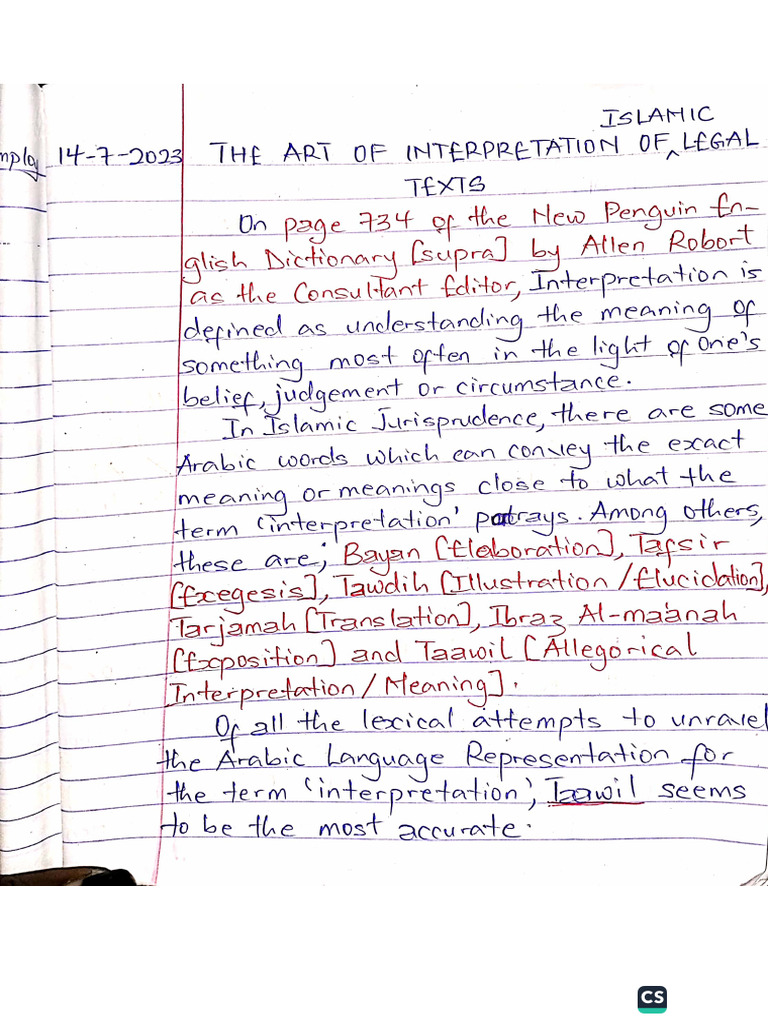 ISLAMIC
14-7-2023 THE ART OF INTERPRETATION OF ^ LEGAL
TEXTS
On page 734 of the New Penguin En-
glish Dictionary [supra] by Allen Robort
as the Consultant Editor, Interpretation is
defined as understanding the meaning of
something most often in the light of one's
belief, judgement or circumstance.
In Islamic Jurisprudence, there are some
Arabic words which can convey the exact
meaning or meanings close to what the
term 'interpretation' patrays. Among others,
these are; Bayan [Elaboration], Tafsir
[Exegesis], Tawdih [Illustration/Elucidation],
Tarjamah [Translation], Ibraz Al-ma'anah
[Exposition] and Taawil [Allegorical
Interpretation/Meaning].
Of all the lexical attempts to unravel
the Arabic Language Representation for
the term 'interpretation', Taawil seems
to be the most accurate.
CS